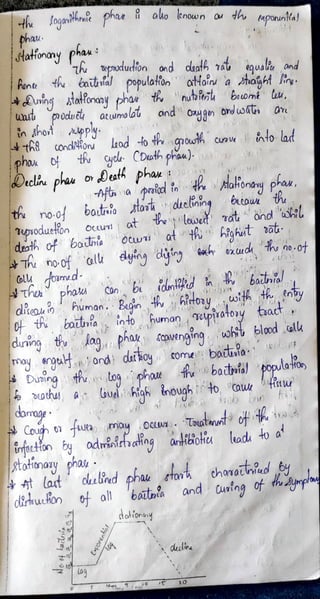 the logarithmic phase is also known as the exponential
phase.
Stationary phase :
The reproduction and death rate equalis and
hence the bacterial population attains a straight line.
* During stationary phase the nutrients become less,
waste products accumulate and oxygen and water are
in short supply.
* This conditions lead to the growth curve into last
phase of the cycle. (Death phase).
Decline phase or Death phase :
-After a period in the stationary phase,
the no.of bacteria starts declining because the
reproduction occurs at the lowest rate and while
death of bacteria occurs at the highest rate.
* The no.of cells dying exceeds the no.of
cells formed.
* These phases can be identified in the bacterial
disease in human. Begin the history with the entry
of the bacteria into human respiratory tract.
during the lag phase scavenging white blood cells
may engulf and destroy some bacteria.
* During the log phase the bacterial population
reaches a level high enough to cause tissue
damage.
* Cough or fever may occur. Treatment of the
infection by administrating antibiotics leads to a
stationary phase.
* At last declined phase starts characterized by
distruction of all bacteria and curing of the symptoms
stationary
No of bacteria
Exponential
log
decline
lag
0 5 15 20